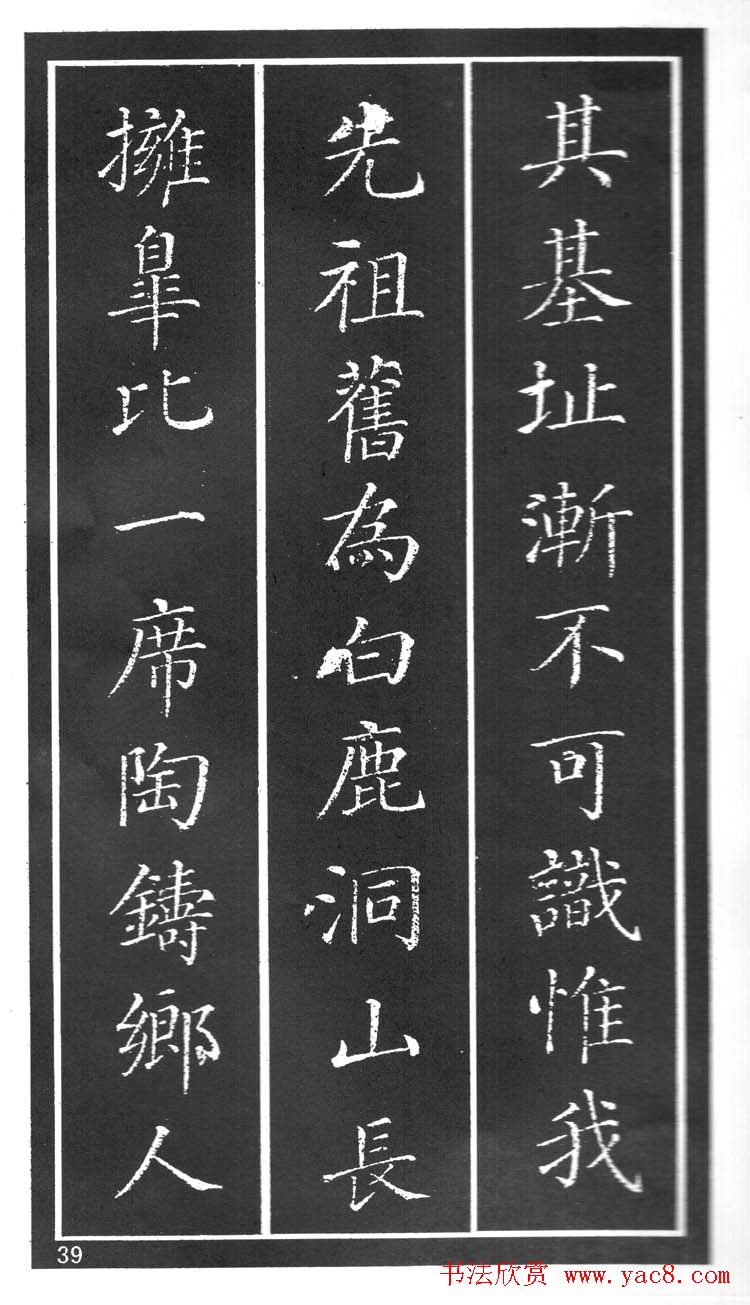 其基址漸不可識惟我
先祖舊為白鹿洞山長
擁皐比一席陶鑄鄉人
39
书法欣赏 www.yac8.com